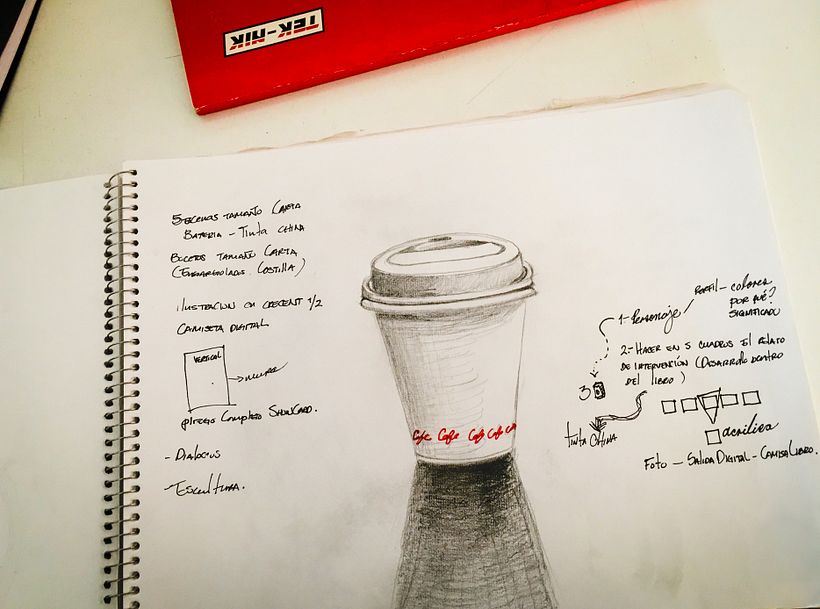 TEK-NIK
5 escenas tamaño Carta
Bateria - Tinta china
Bocetos tamaño Carta
(Engargolados Costilla)
ilustracion en crecent 1/2
Camiseta digital
VERTICAL
pliego Completo ShowCard.
- Dialogus
- Escultura.
Cafe Cafe Cafe Cafe
1- Personaje
Perfil - colores
Por qué?
Significado
2- Hacer en 5 cuadros el relato
de intervención (Desarrollo dentro
del libro)
3
tinta China
acrilico
Foto - Salida Digital - Camisa Libro.